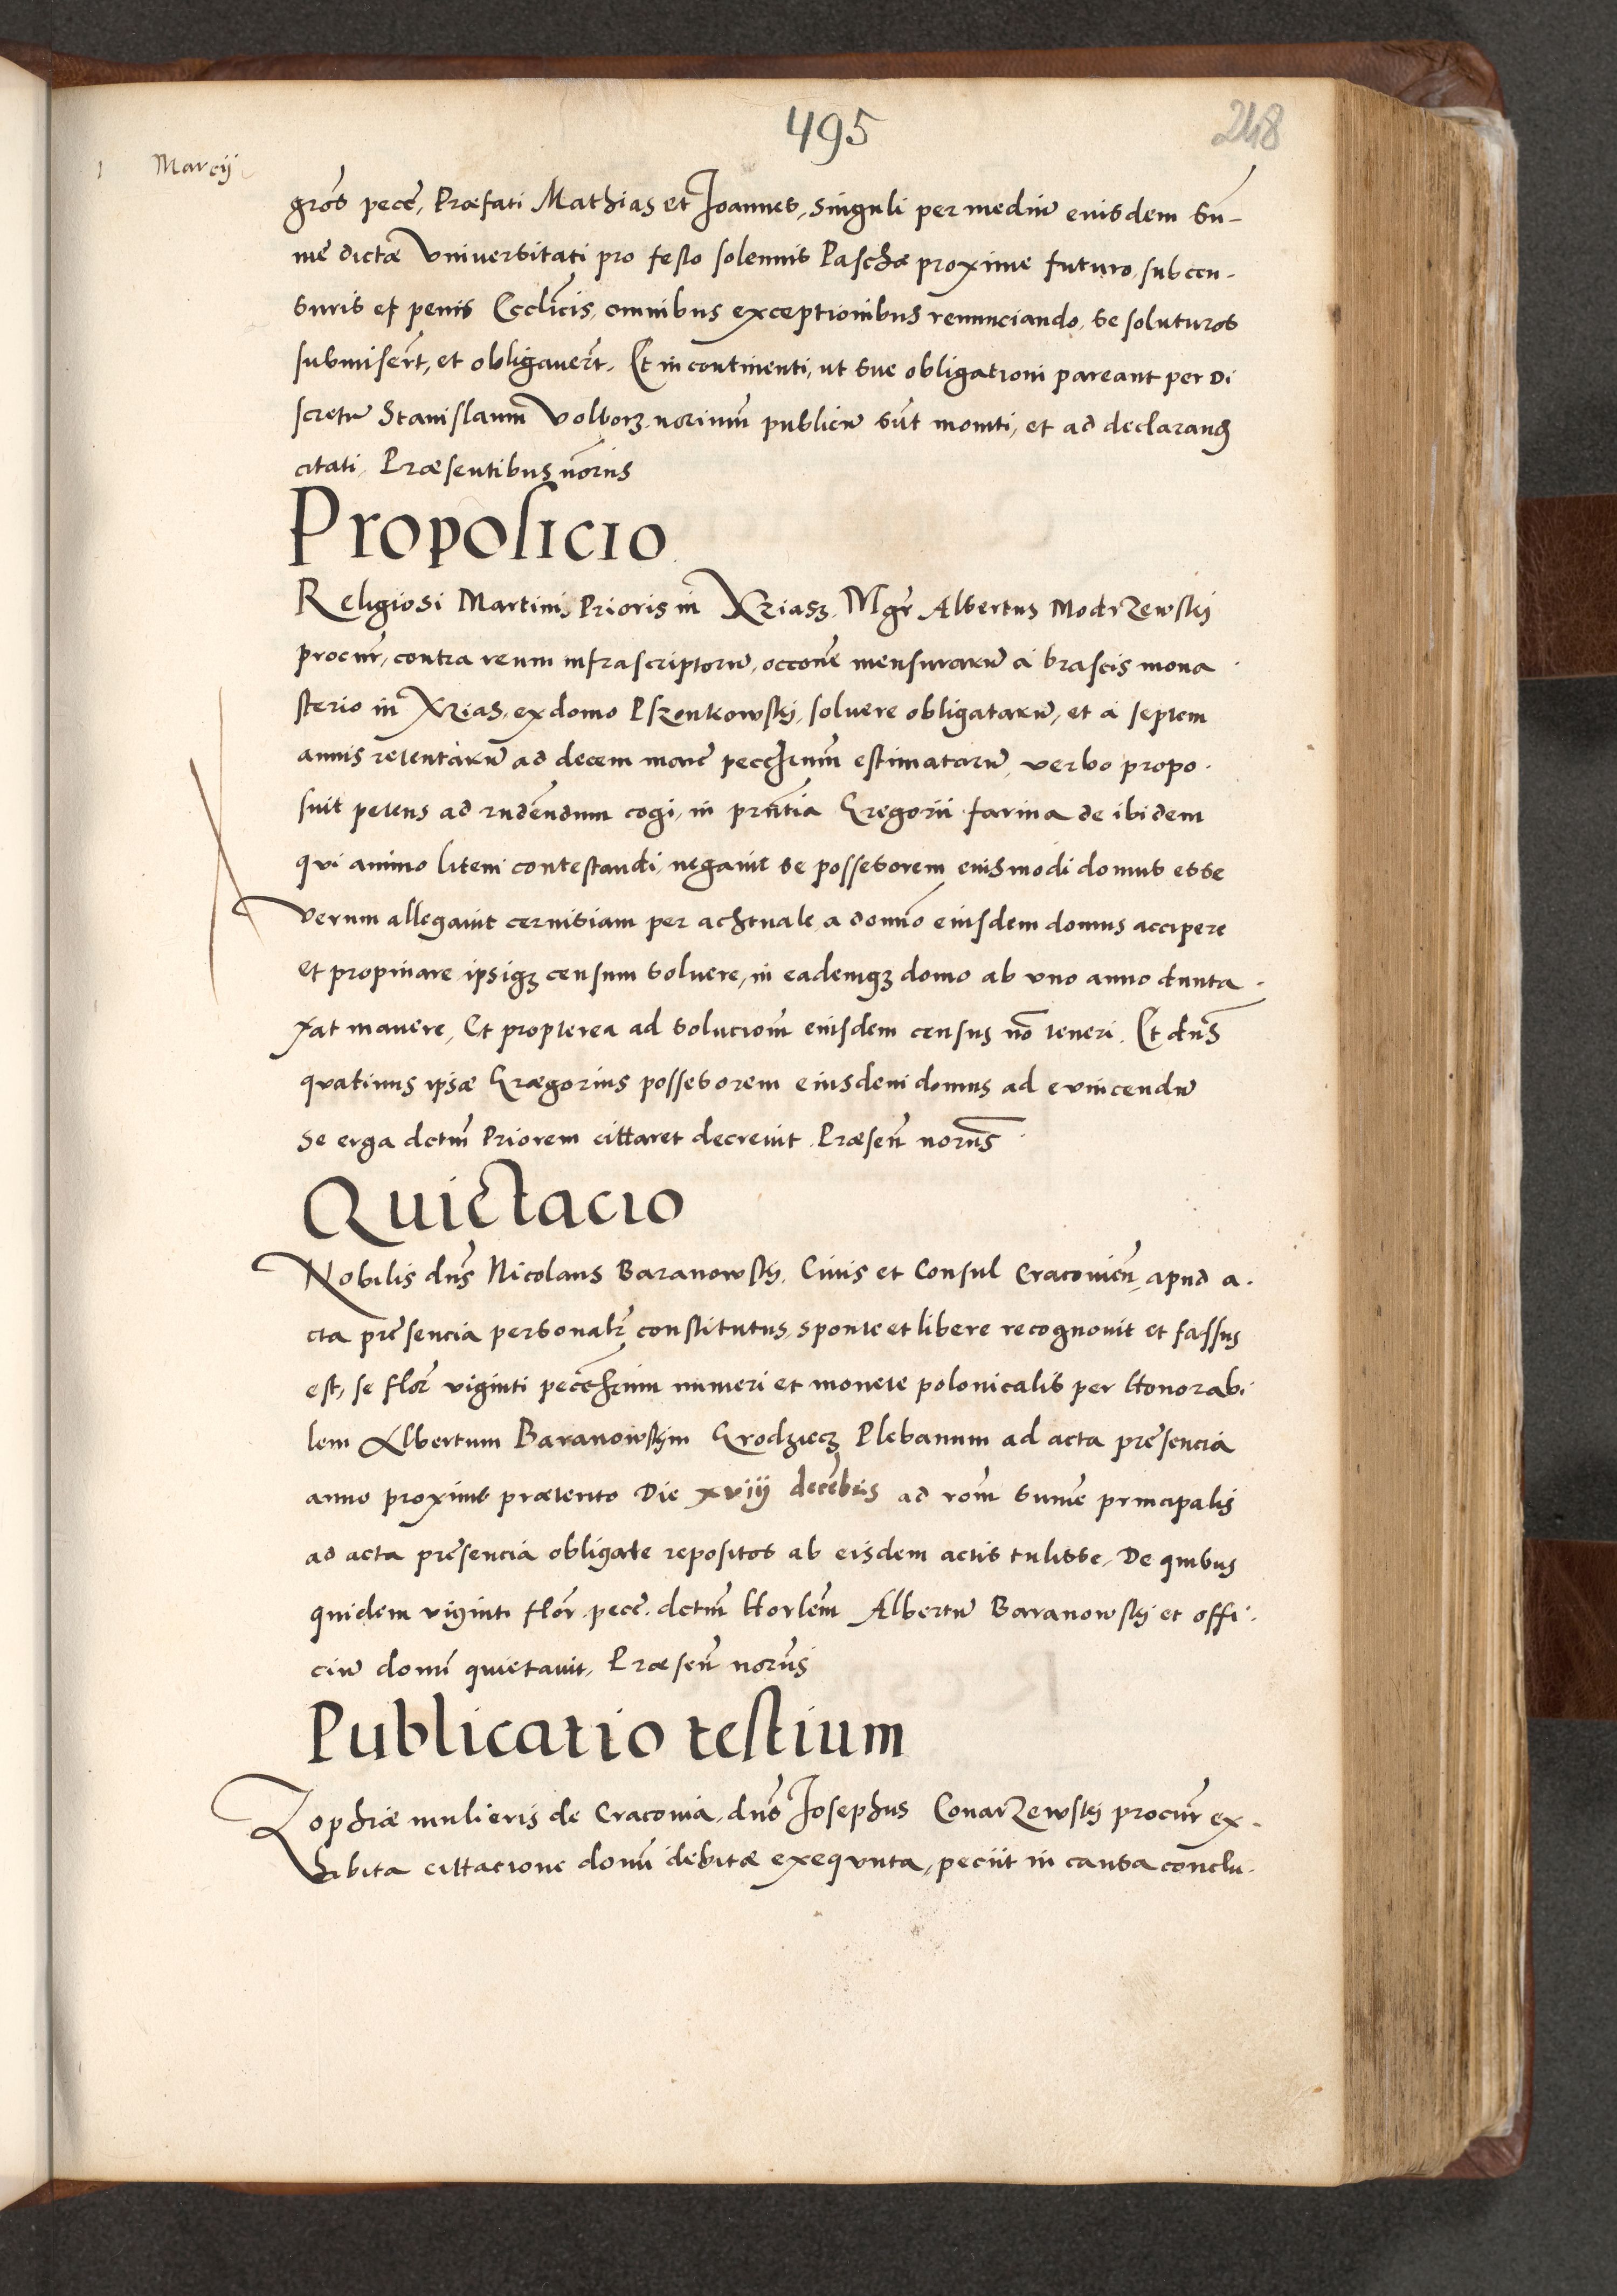 495
248
1 Marcij
gros pece, Præfati Mathias et Joannes, singuli per mediu eiusdem su-
me dictæ Universitati pro festo solennis Paschæ proxime futuro, sub cen-
suris et penis Ecclicis, omnibus exceptionibus renunciando, se soluturos
submisert, et obligavert. Et in continenti, ut sue obligationi pareant per Di
scretu Stanislaum Volborz norium publicu sut moniti, et ad declarandu
citati. Præsentibus noriis
Proposicio
Religiosi Martini Prioris in Xziasz. Mgr Albertus Modrzewskj
procur, contra reum infrascriptoru, occone mensuraru a brascis mona
sterio in Xzias, ex domo Pszonkowskj, soluere obligataru, et a septem
annis retentaru ad decem marc estimataru, verbo propo-
suit petens ad rndendum cogi, in pntia Gregorii farina de ibidem
qui animo litem contestandi, negauit se possessorem eiusmodi domus esse
Verum allegauit ceruisiam per achtuale a domio eiusdem domus accipere
et propinare ipsiq censum soluere, in eademq domo ab uno anno dunta-
xat manere, Et propterea ad soluciom eiusdem census no teneri. Et dns
quatinus ipsæ Grægorius possessorem eiusdem domus ad euincendu
se erga dctm Priorem cittaret decreuit. Præsen noriis
Quictacio
Nobilis dns Nicolaus Baranowskj, Ciuis et Consul Cracouien, apud a-
cta presencia personalr constitutus, sponte et libere recognouit et fassus
est, se flor viginti numeri et monete polonicalis per Honorabi
lem Albertum Baranowskjm Grodziecz Plebanum ad acta presencia
anno proxime prætento Die xviij decebris ad rom sume principalis
ad acta presencia obligate repositos ab eisdem actis tulisse, De quibus
quidem viginti flor. pece. dctm Horlem Albertu Baranowskj et offi-
ciu domi quietauit, Præsen noriis
Publicatio testium
Zophiæ mulieris de Cracouia, dns Josephus Conarzewskj procur ex-
hibita cittacione domi debitæ exequuta, peciit in causa conclu-